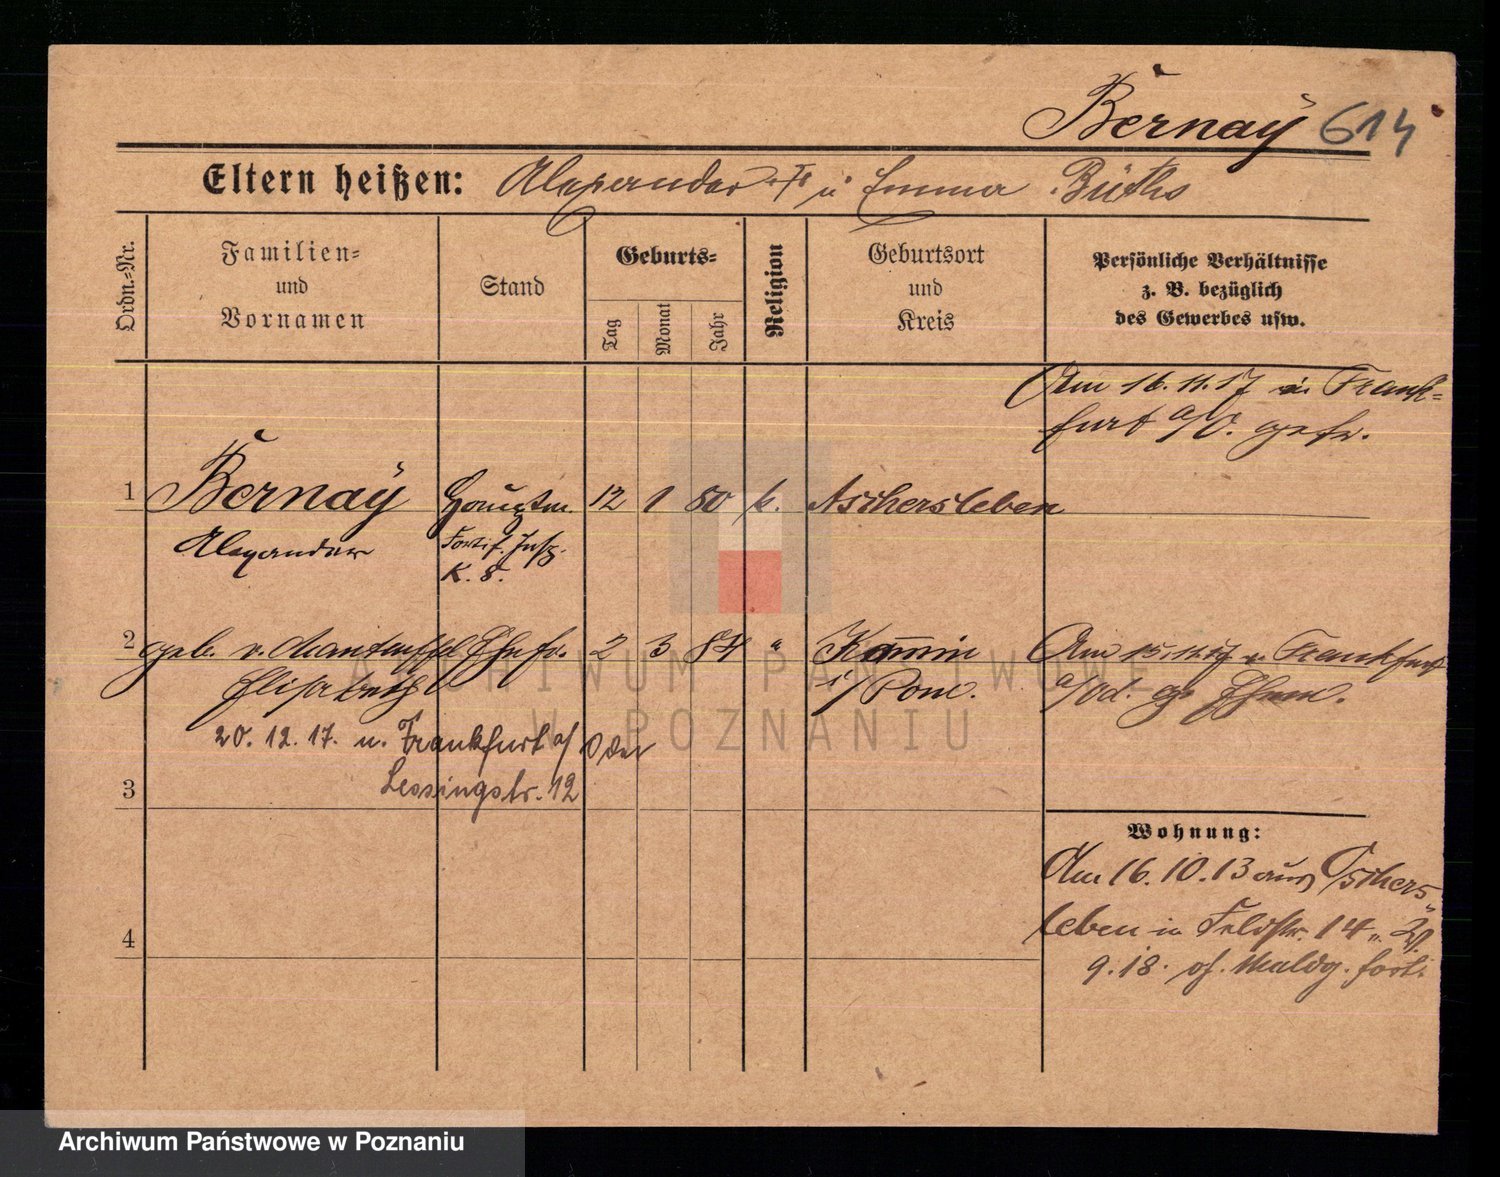 Bernaÿ 614
Eltern heißen: Alexander u Emma Büths
Ordn.=Nr.
Familien=
und
Vornamen
Stand
Geburts=
Tag
Monat
Jahr
Religion
Geburtsort
und
Kreis
Persönliche Verhältnisse
z. B. bezüglich
des Gewerbes usw.
Am 16.11.17 in Frank=
furt a/O. gesch.
1 Bernaÿ Hauptm. 12 1 80 k. Aschersleben
Alexander Fortif. Insp.
K. 8.
2 geb. v. Manteuffel Ehefr. 2 3 84 " Kammin
Elisabeth i/Pom.
Am 15.11.17 Frankfurt
a/Od.
20.12.17. n. Frankfurt a/Oder
Lessingstr. 12
3
4
Wohnung:
Am 16.10.13 aus Aschers
leben in Feldstr. 14
9.18.
ARCHIWUM PAŃSTWOWE
W POZNANIU
Archiwum Państwowe w Poznaniu